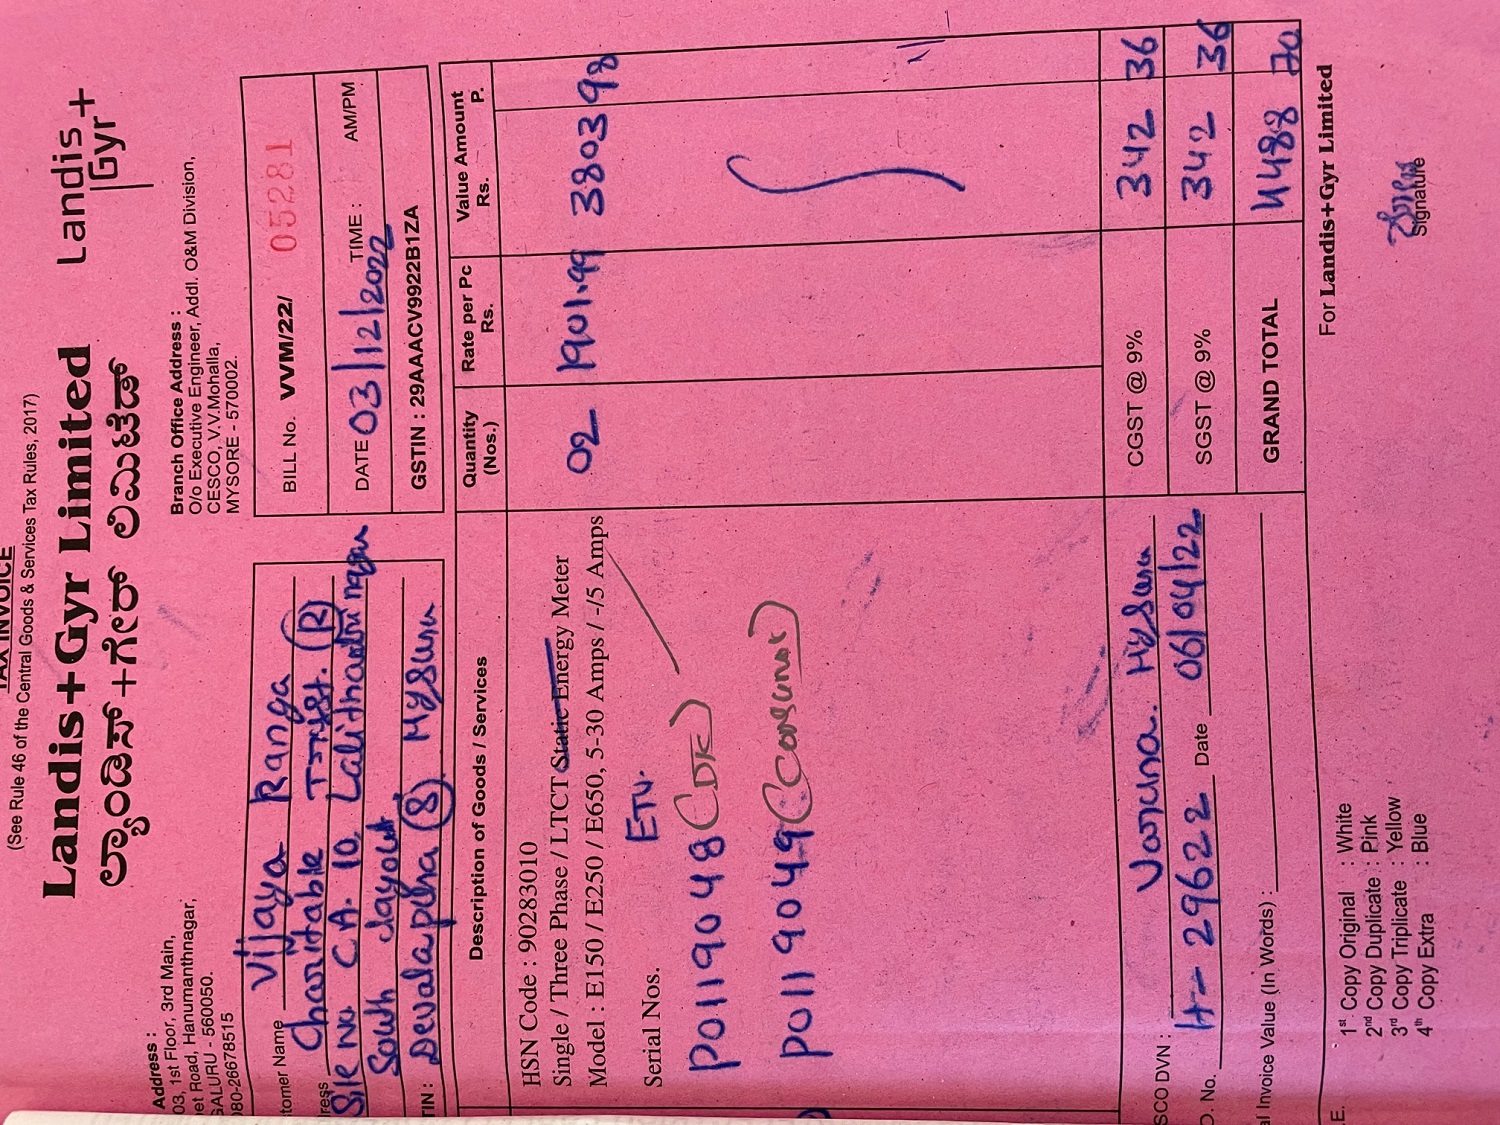 TAX INVOICE
(See Rule 46 of the Central Goods & Services Tax Rules, 2017)
Landis+Gyr Limited
ಲ್ಯಾಂಡಿಸ್+ಗೇರ್ ಲಿಮಿಟೆಡ್
Landis
Gyr+
Address :
03, 1st Floor, 3rd Main,
et Road, Hanumanthnagar,
GALURU - 560050.
080-26678515
Branch Office Address :
O/o Executive Engineer, Addl. O&M Division,
CESCO, V.V.Mohalla,
MYSORE - 570002.
tomer Name Vijaya Ranga
Charitable Trust. (R)
ress Site No CA. 10 Lalithadri nagar
South Layout
TIN : Devalapura (8) Mysuru
BILL No. VVM/22/ 05281
DATE 03/12/2022 TIME : AM/PM
GSTIN : 29AAACV9922B1ZA
Description of Goods / Services Quantity (Nos.) Rate per Pc Rs. Value Amount Rs. P.
HSN Code : 90283010
Single / Three Phase / LTCT Static Energy Meter 02 1901.99 3803 98
Model : E150 / E250 / E650, 5-30 Amps / -/5 Amps
Serial Nos. ETV.
P0119048 (DK)
P0119049 (Consumat)
SCO DVN : Varuna. Mysuru CGST @ 9% 342 36
O. No. H-- 29622 Date 06/04/22 SGST @ 9% 342 36
al Invoice Value (In Words) : GRAND TOTAL 4488 70
For Landis+Gyr Limited
Signature
.E. 1st Copy Original : White
2nd Copy Duplicate : Pink
3rd Copy Triplicate : Yellow
4th Copy Extra : Blue